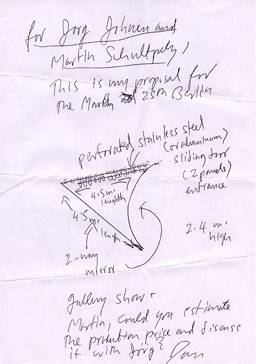 for Jorg Johnen and
Martin Schultpely,
This is my proposal for
the March 25th Berlin
perforated stainless steel
(or aluminum)
sliding door
(2 panels)
entrance
4.5m.
length
4.5m
length
2-way
mirror
2.4 m.
high
gallery show.
Martin, could you estimate
the production price and discuss
it with Jorg?
Dan